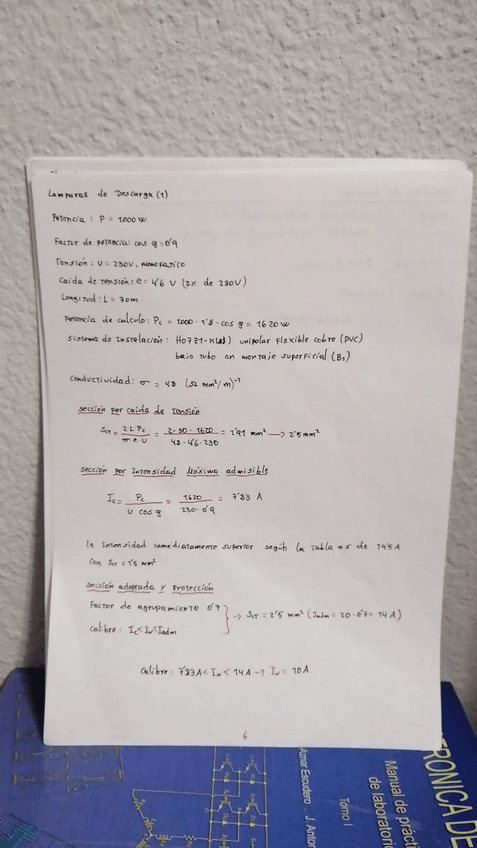 Lamparas de Descarga (1)
Potencia : P = 1000 W
Factor de potencia: cos φ = 0'9
Tensión : U = 230V, monofasico
Caida de tensión : e = 4'6 V (2% de 230V)
Longitud : L = 30m
Potencia de calculo: Pc = 1000 · 1'8 · cos φ = 1620 W
Sistema de Instalación : H07Z1-K(AS) unipolar flexible cobre (PVC)
bajo tubo en montaje superficial (B1)
Conductividad: σ = 48 (Ω mm²/m)⁻¹
Sección por caida de tensión
SCT = 2·L·Pc / σ·e·U = 2·30·1620 / 48·4'6·230 = 1'91 mm² → 2'5 mm²
Sección por Intensidad Máxima admisible
Ic = Pc / U cos φ = 1620 / 230·0'9 = 7'83 A
la Intensidad inmediatamente superior según la tabla es de 14'5 A
con SCT = 1'5 mm²
Sección adoptada y Protección
Factor de agrupamiento 0'7
calibre : Ic < IN < Iadm
→ SCT = 2'5 mm² (Iadm = 20 · 0'7 = 14 A)
Calibre : 7'83 A < IN < 14 A → IN = 10 A
6
TRONICA DE
Manual de práctic
de laboratorio
Tomo I
Amar Escudero · J. Anton